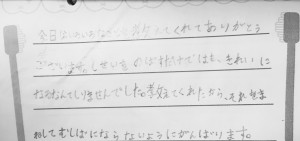 今日はしのいおなでに教えてくれてありがとう
ございます。しせいをのばすだけではも、きれいに
なるなんてしりませんでした。教えてくれたから、それをま
わしてむしばにならないようにがんばります。